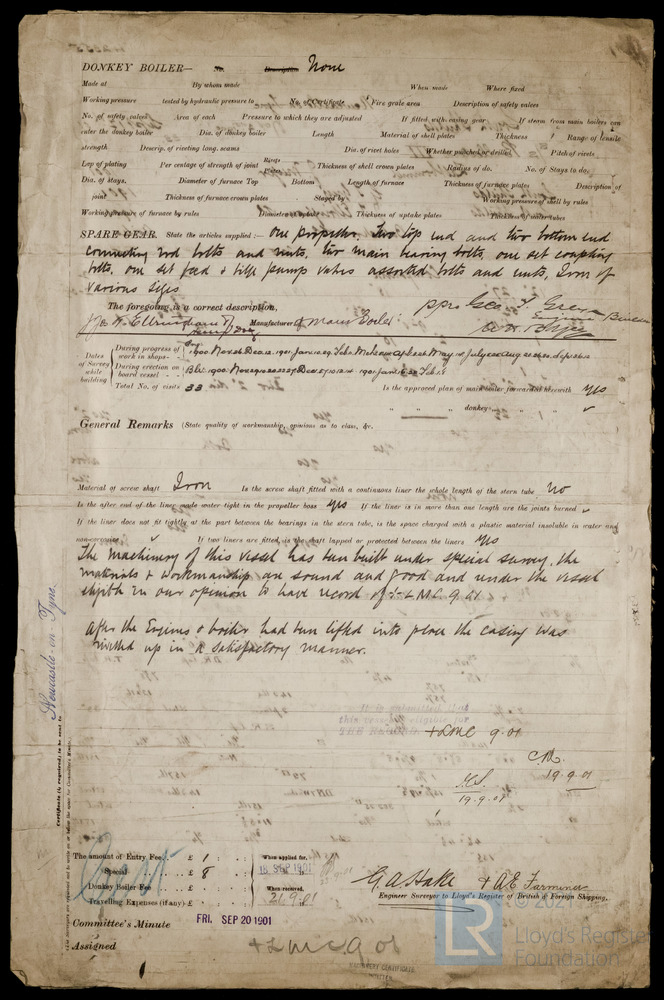 DONKEY BOILER— No. Description None
Made at By whom made When made Where fixed
Working pressure tested by hydraulic pressure to No. of Certificate Fire grate area Description of safety valves
No. of safety valves Area of each Pressure to which they are adjusted If fitted with easing gear If steam from main boilers can
enter the donkey boiler Dia. of donkey boiler Length Material of shell plates Thickness Range of tensile
strength Descrip. of riveting long. seams Dia. of rivet holes Whether punched or drilled Pitch of rivets
Lap of plating Per centage of strength of joint Rivets Plates Thickness of shell crown plates Radius of do. No. of Stays to do.
Dia. of stays. Diameter of furnace Top Bottom Length of furnace Thickness of furnace plates Description of
joint Thickness of furnace crown plates Stayed by Working pressure of shell by rules
Working pressure of furnace by rules Diameter of uptake Thickness of uptake plates Thickness of water tubes
SPARE GEAR. State the articles supplied:— One propeller, two top end and two bottom end
connecting rod bolts and nuts, two main bearing bolts, one set coupling
bolts, one set feed & bilge pump valves assorted bolts and nuts, Iron of
various sizes
The foregoing is a correct description,
Manufacturer of Main Boiler:
Dates of Survey while building
During progress of work in shops—
During erection on board vessel—
Total No. of visits 33 Is the approved plan of main boiler forwarded herewith yes
" " " donkey " "
General Remarks (State quality of workmanship, opinions as to class, &c.
Material of screw shaft Iron Is the screw shaft fitted with a continuous liner the whole length of the stern tube No
Is the after end of the liner made water tight in the propeller boss yes If the liner is in more than one length are the joints burned
If the liner does not fit tightly at the part between the bearings in the stern tube, is the space charged with a plastic material insoluble in water and
non-corrosive If two liners are fitted, is the shaft lapped or protected between the liners yes
The machinery of this vessel has been built under special survey, the
materials & workmanship are sound and good and render the vessel
eligible in our opinion to have record of + LMC 9.01
After the Engines & boiler had been lifted into place the casing was
rivetted up in a satisfactory manner.
Newcastle-on-Tyne.
It is submitted that
this vessel is eligible for
THE RECORD + LMC 9.01
19.9.01
19.9.01
The amount of Entry Fee.. £ 1 : : When applied for,
Special .. £ 8 : : 18 SEP 1901
Donkey Boiler Fee .. £ : : When received,
Travelling Expenses (if any) £ : : 21.9.01
G.A. Hake & A.E. Farminer
Engineer Surveyor to Lloyd's Register of British & Foreign Shipping.
Committee's Minute FRI. SEP 20 1901
Assigned + L M C 9 01
MACHINERY CERTIFICATE
WRITTEN
LR
© 2021
Lloyd's Register
Foundation